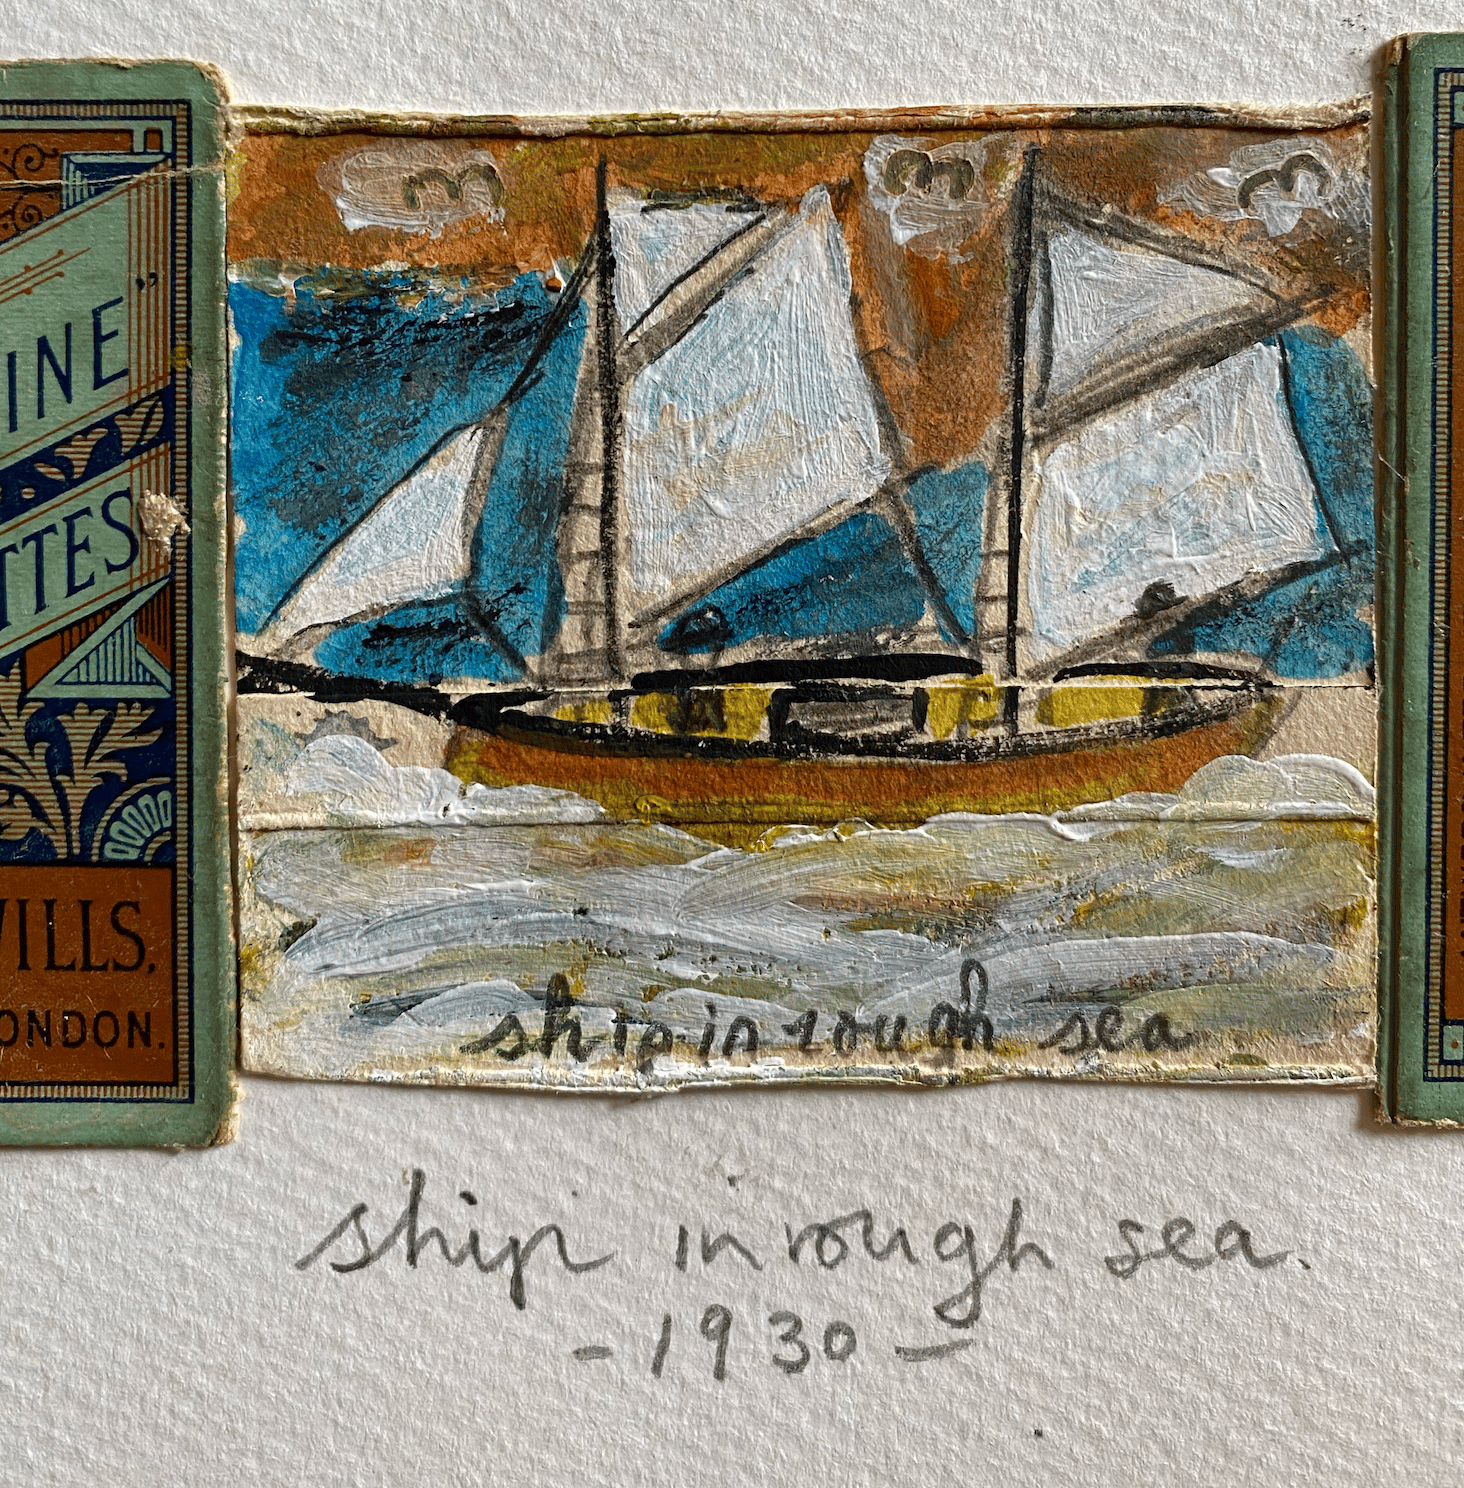 3 3 3
INE"
TTES
WILLS,
LONDON.
ship in rough sea
ship in rough sea.
- 1930 -